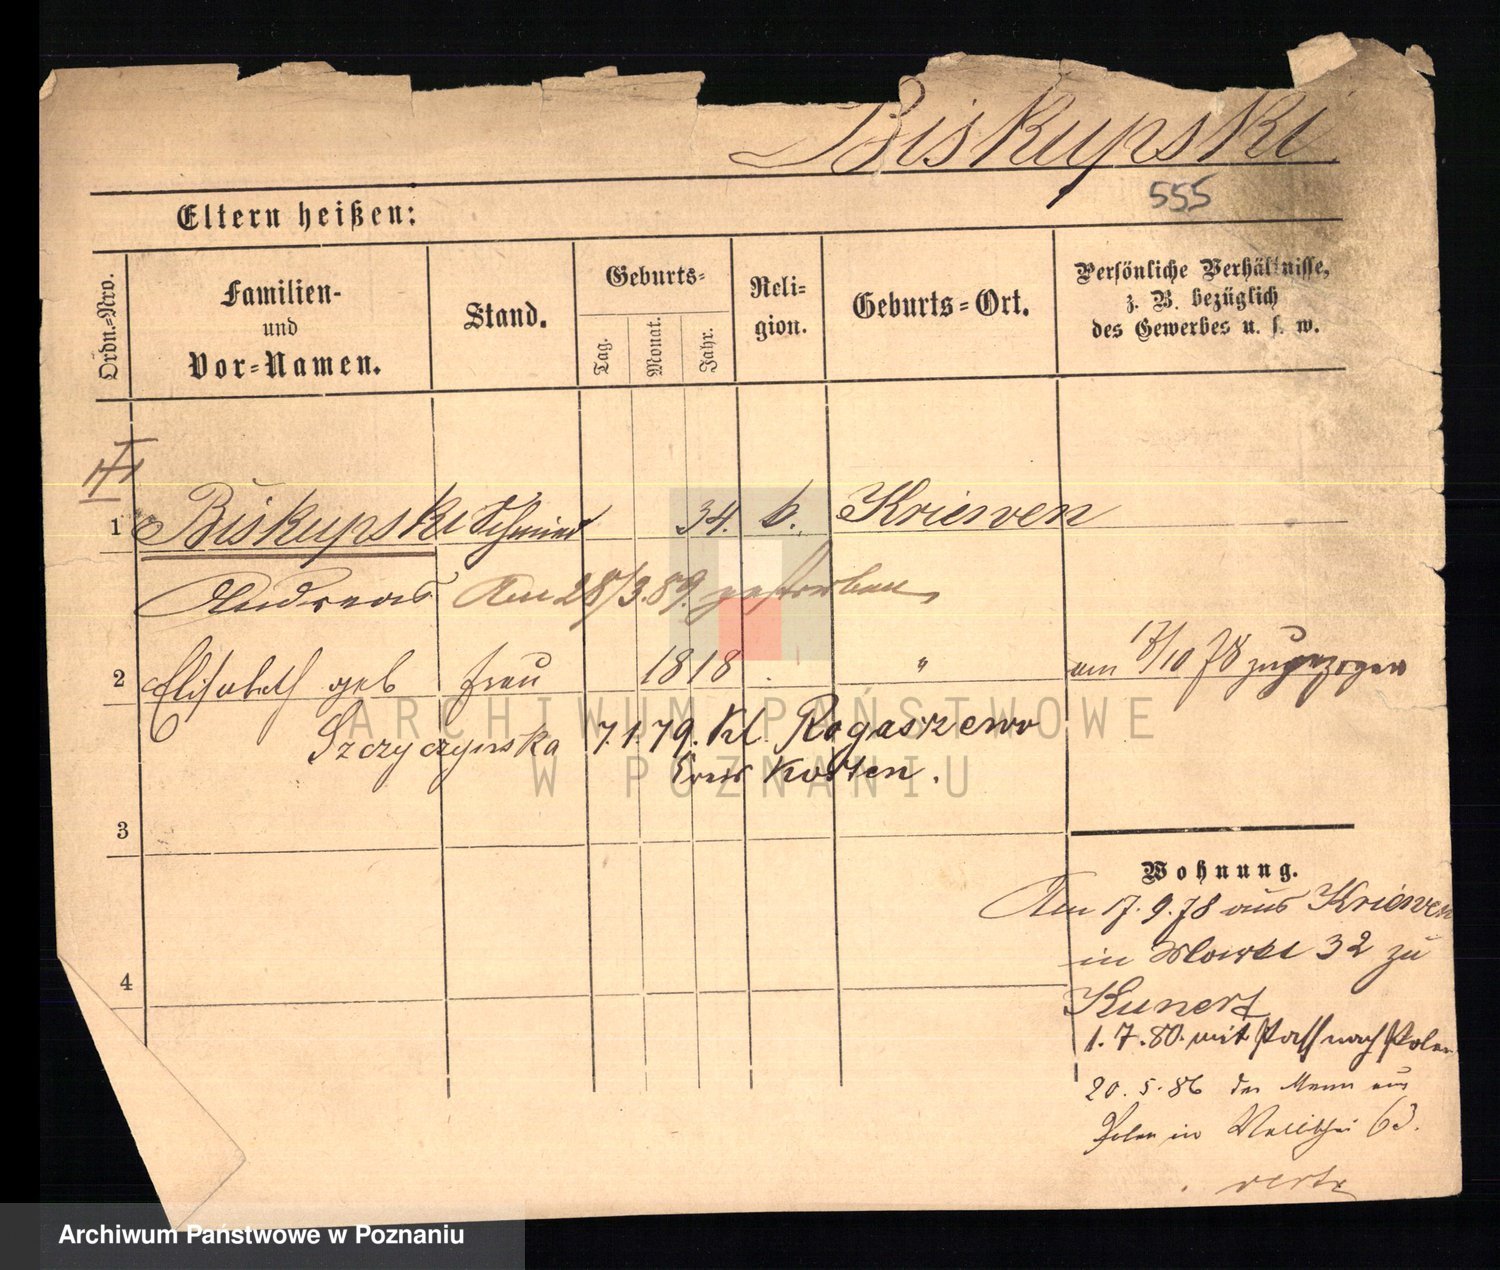 Biskupski
555
Eltern heißen:
Ordn.=Nro.
Familien-
und
Vor=Namen.
Stand.
Geburts=
Tag.
Monat.
Jahr.
Reli=
gion.
Geburts=Ort.
Persönliche Verhältnisse,
z. B. bezüglich
des Gewerbes u. s. w.
1 Biskupski Schmied 34. k. Kriewen
Andreas Am 28/3.89. gestorben
2 Elisabeth geb Frau 1818 " am 17/10 78 zugezogen
Szczyczynska 7.1.79. Kl. Rogaszewo
Kreis Kosten.
3
4
Wohnung.
Am 17.9.78 aus Kriewen
in 32 zu
Kunert
1.7.80. mit Pass nach Polen
20.5.86 der Mann aus
Polen in Wallischei 63.
verte
ARCHIWUM PAŃSTWOWE
W POZNANIU
Archiwum Państwowe w Poznaniu